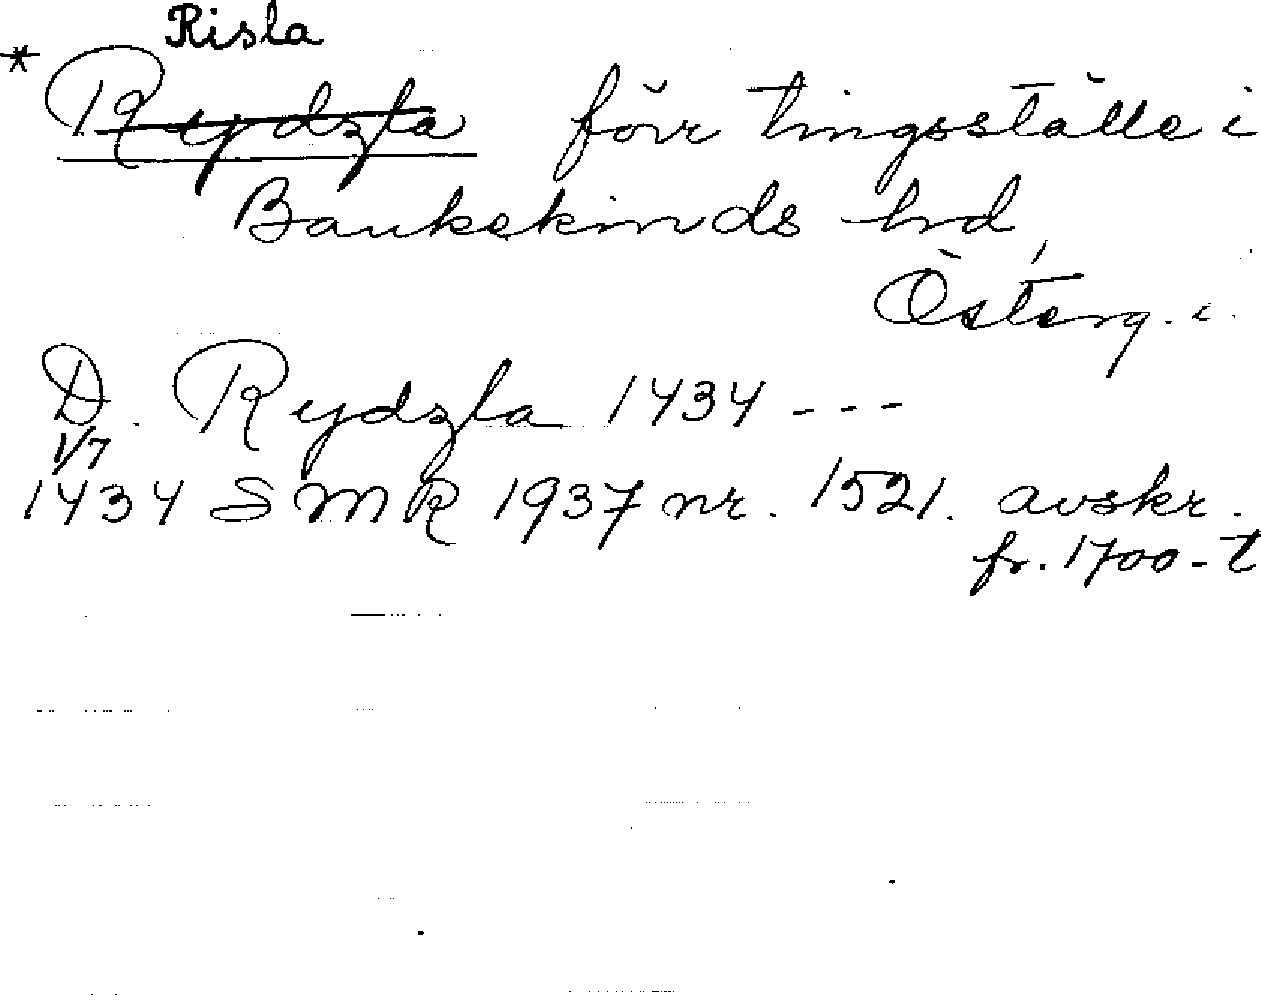 Risla
* Rydzla förr tingsställe i
Bankekinds hd,
Österg. i.
D. Rydzla 1434 ---
1/7
1434 SMR 1937 nr. 1521. avskr.
fr. 1700-t